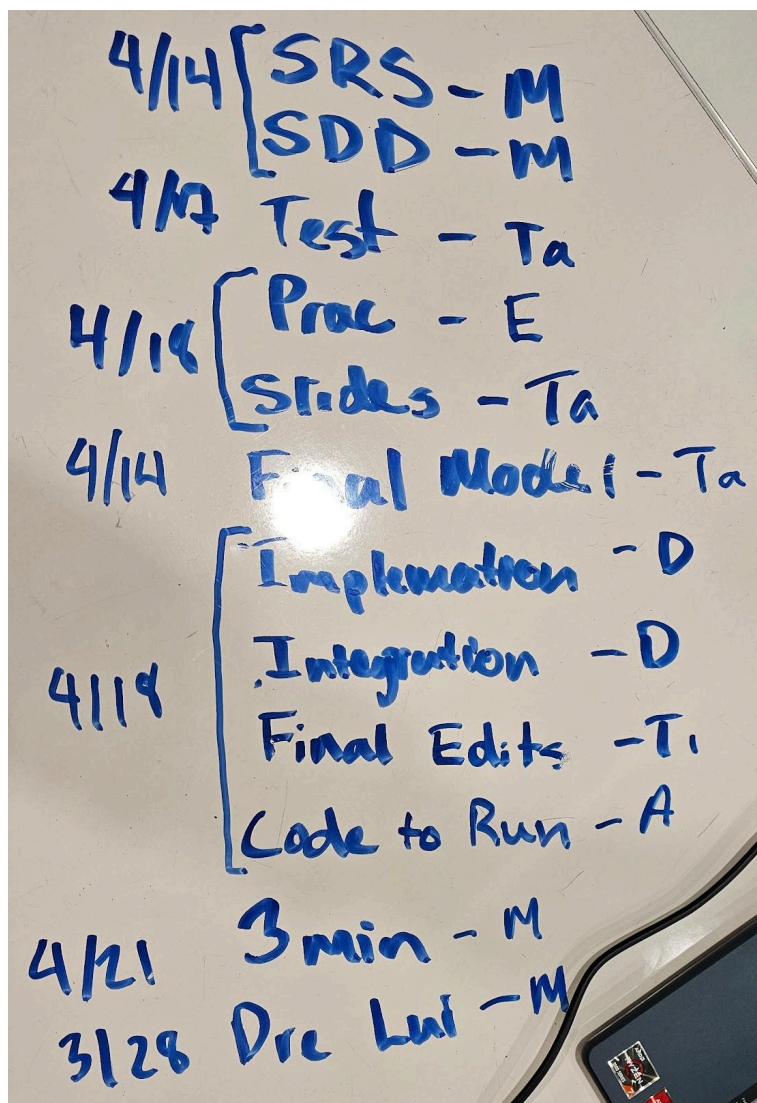 4/14 SRS - M
SDD - M
4/17 Test - Ta
4/18 Prac - E
Slides - Ta
4/14 Final Model - Ta
Implemation - D
4/18 Integration - D
Final Edits - Ti
Code to Run - A
4/21 3 min - M
3/28 Dre Lui - M
RYZEN